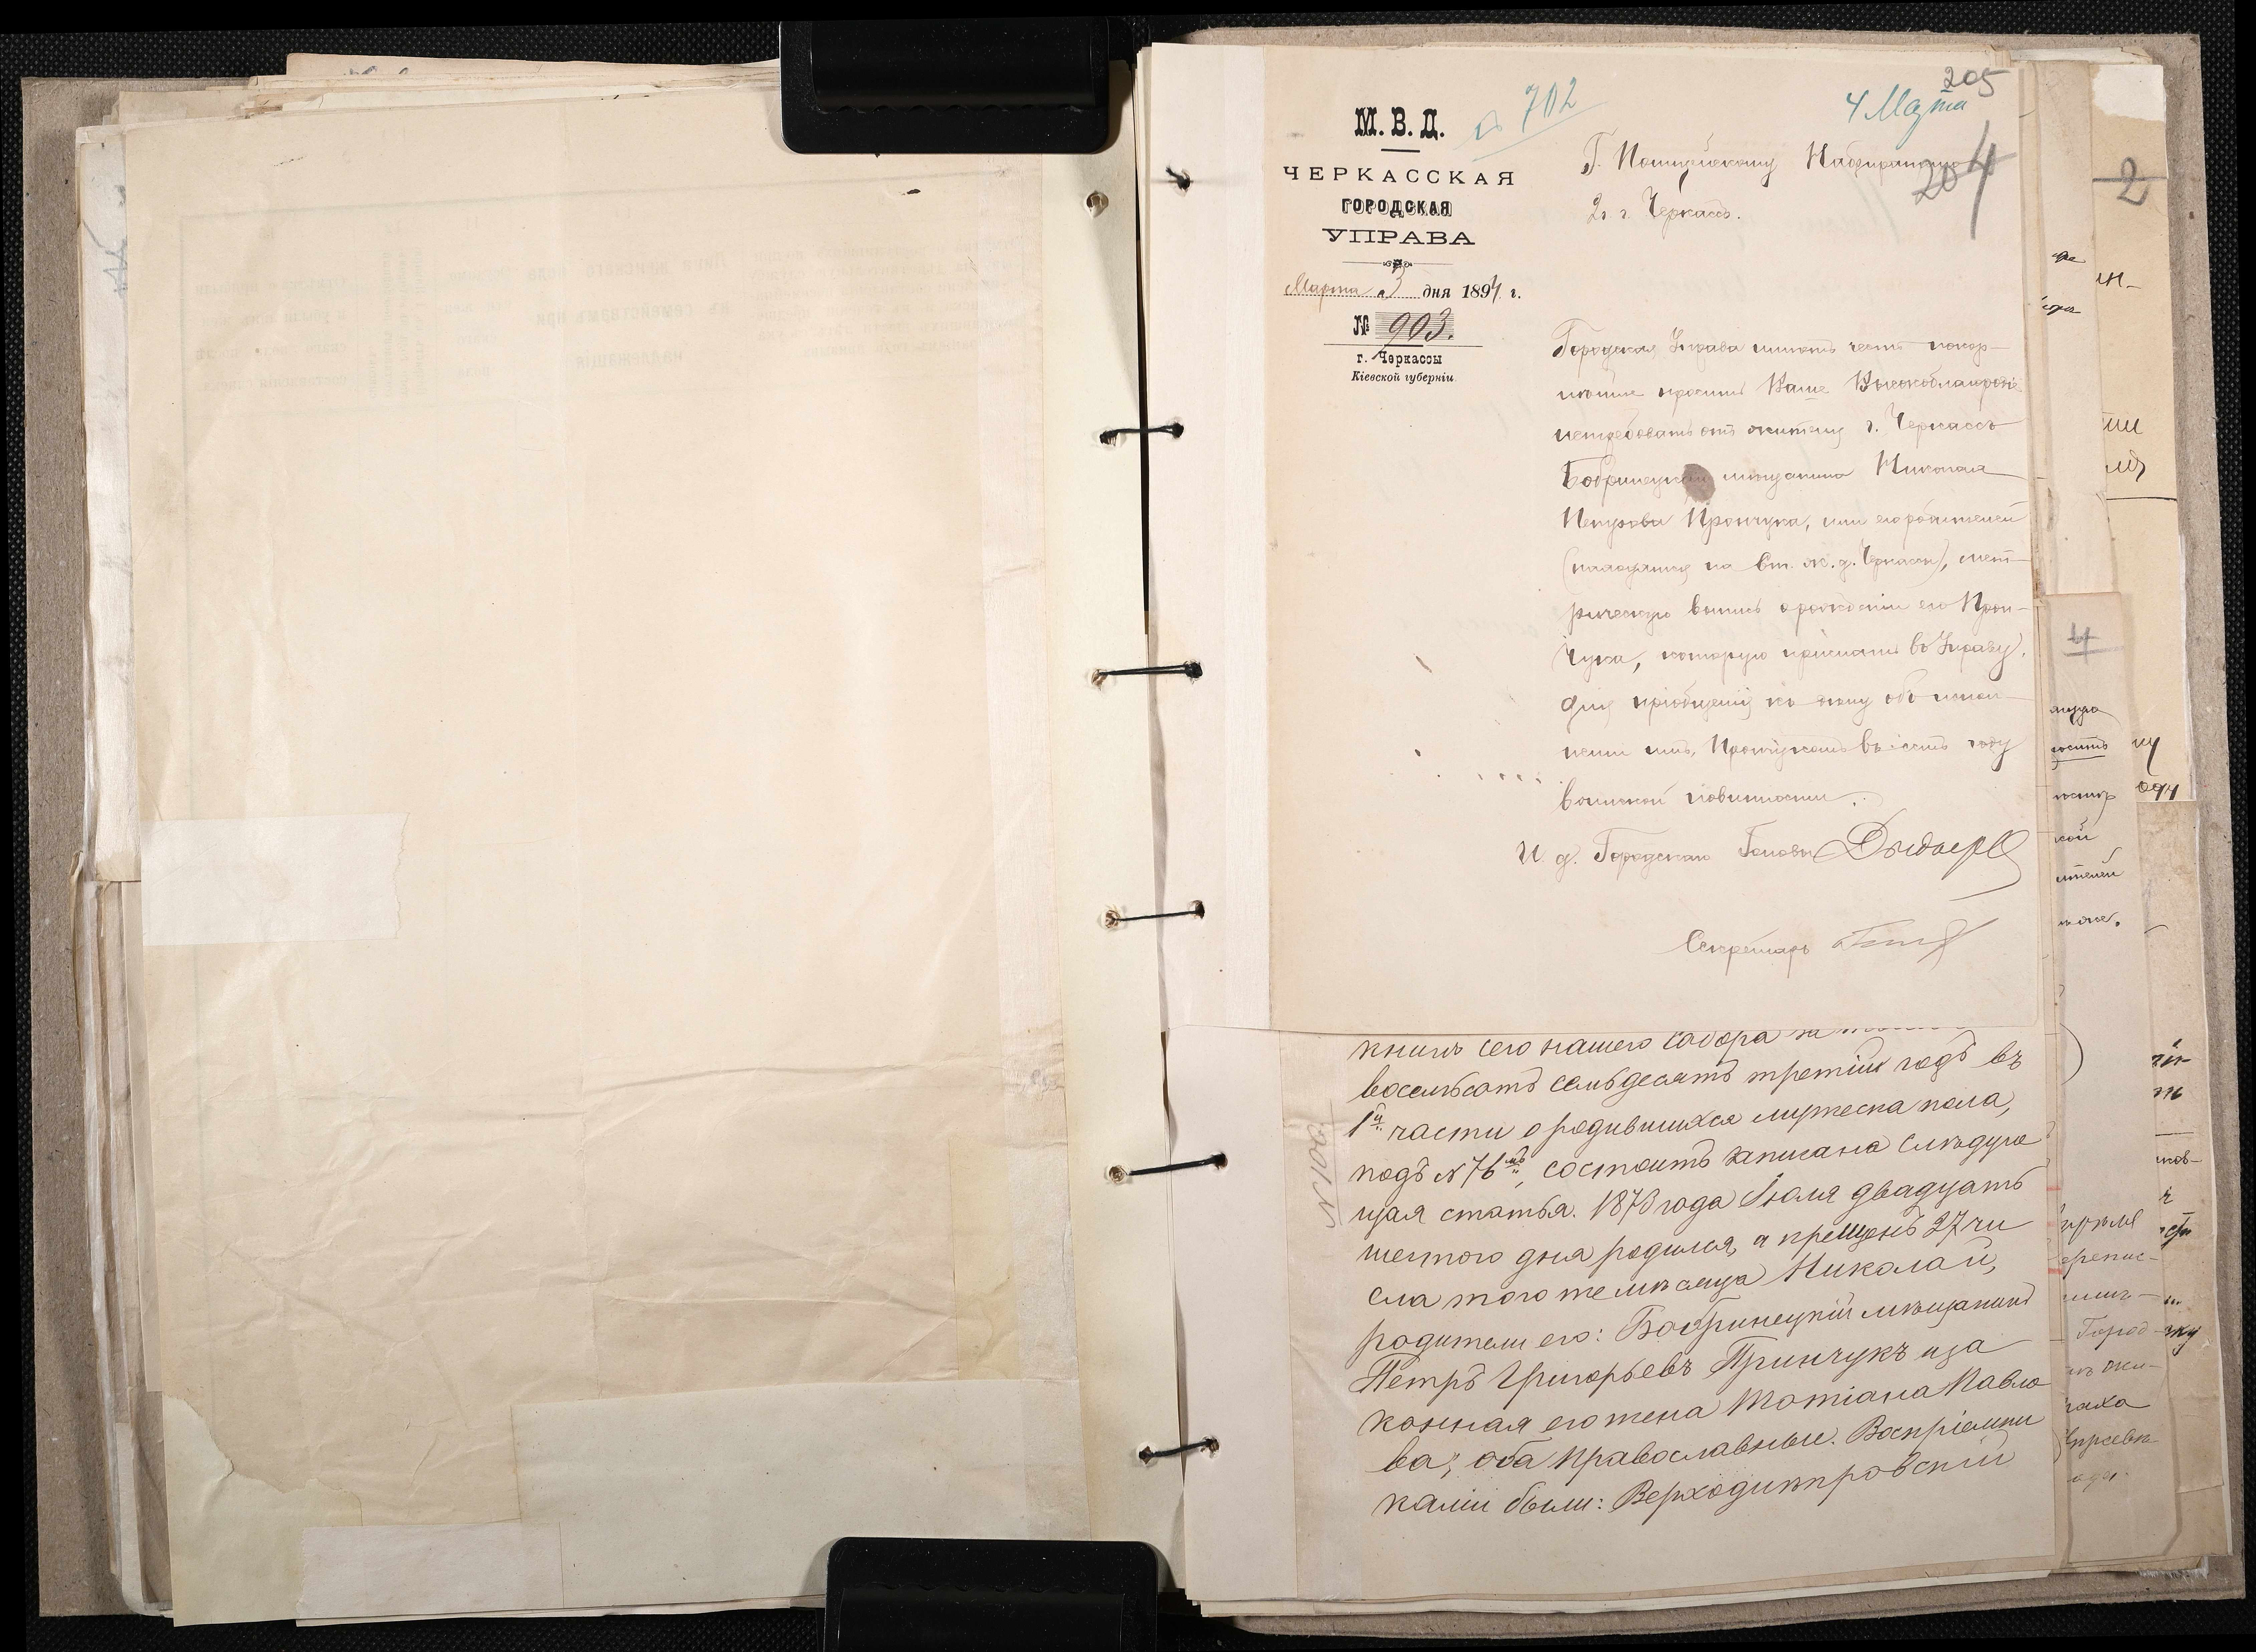 205
4 Марта
№ 702
204
М. В. Д.
ЧЕРКАССКАЯ
ГОРОДСКАЯ
УПРАВА
Марта 3 дня 1894 г.
№ 903.
г. Черкассы
Кіевской губерніи
Г. Полицейскому Надзирателю
2 ч. г. Черкассъ.
Городская Управа имѣетъ честь покор-
нѣйше просить Ваше Высокоблагородіе
истребовать отъ жителя г. Черкассъ
Бобринецкаго мѣщанина Николая
Петрова Прончука, или его родителей
(находящихся на Ст. ж. д. Черкассы), мет-
рическую выпись о рожденіи его Прон-
чука, которую прислать въ Управу,
для пріобщенія къ дѣлу объ испол-
неніи имъ, Прончукомъ въ семъ году
воинской повинности.
И. д. Городскаго Головы
Секретарь
№ 100
книгѣ сего нашего собора за
восемьсотъ семьдесятъ третій годъ въ
1й части о родившихся мужеска пола,
подъ № 76мъ, состоитъ записана слѣдую
щая статья. 1873 года Іюля двадцать
шестого дня родился, а крещенъ 27 чи
сла того же мѣсяца Николай,
родители его: Бобринецкій мѣщанинъ
Петръ Григорьевъ Принчукъ и за
конная его жена Татіана Павло
ва, оба православные. Воспріемни
ками были: Верходнѣпровскій
2
4